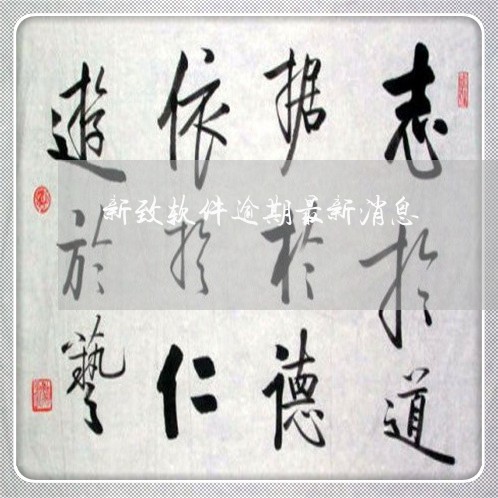 志於道
据於德
依於仁
遊於藝
新致软件逾期最新消息